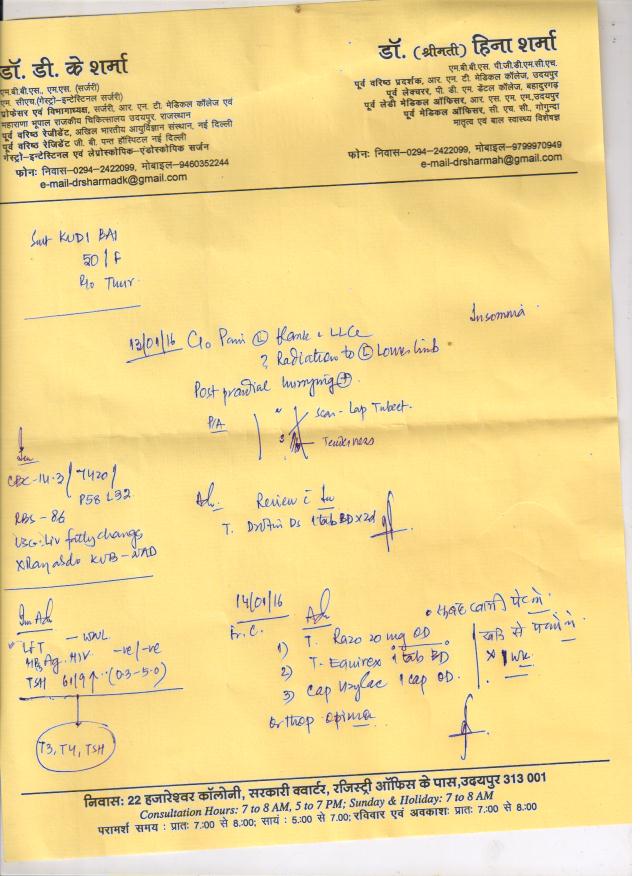 डॉ. डी. के शर्मा
एम.बी.बी.एस., एम.एस. (सर्जरी)
एम. सीएच.(गेस्ट्रो–इन्टेस्टिनल सर्जरी)
प्रोफेसर एवं विभागाध्यक्ष, सर्जरी, आर. एन. टी. मेडिकल कॉलेज एवं
महाराणा भूपाल राजकीय चिकित्सालय उदयपुर, राजस्थान
पूर्व वरिष्ठ रेजीडेंट, अखिल भारतीय आयुर्विज्ञान संस्थान, नई दिल्ली
पूर्व वरिष्ठ रेजिडेंट जी. बी. पन्त हॉस्पिटल नई दिल्ली
गेस्ट्रो–इन्टेस्टिनल एवं लेप्रोस्कोपिक–एंडोस्कोपिक सर्जन
फोनः निवास–0294-2422099, मोबाइल–9460352244
e-mail-drsharmadk@gmail.com
डॉ. (श्रीमती) हिना शर्मा
एम.बी.बी.एस. पी.जी.डी.एम.सी.एच.
पूर्व वरिष्ठ प्रदर्शक, आर. एन. टी. मेडिकल कॉलेज, उदयपुर
पूर्व लेक्चरर, पी. डी. एम. डेंटल कॉलेज, बहादुरगढ़
पूर्व लेडी मेडिकल ऑफिसर, आर. एस. एम. एम.उदयपुर
पूर्व मेडिकल ऑफिसर, सी. एच. सी., गोगुन्दा
मातृत्व एवं बाल स्वास्थ्य विशेषज्ञ
फोनः निवास–0294-2422099, मोबाइल–9799970949
e-mail-drsharmah@gmail.com
Smt KUDI BAI
50/F
R/o Thur.
Insomnia
13/01/16 C/o Pain (L) flank
? Radiation to (L) Lower limb
Post prandial hurrying (+)
P/A
Scar - Lap Tubect.
Tenderness
CBC-14.3/7420/
P58 L32
RBS - 86
USG: Liv fatty change
X Ray KUB - NAD
Adv. Review
T. Drotin DS 1 tab BD x 2d
LFT - WNL
HBsAg. HIV -ve/-ve
TSH 6.19↑ (0.3-5.0)
T3, T4, TSH
14/01/16
Adv
1) T. Razo 20 mg OD
• सुबह खाली पेट में
2) T. Equirex 1 tab BD
3) Cap 1 cap OD.
x 1 wk
Orthop opinion
निवासः 22 हजारेश्वर कॉलोनी, सरकारी क्वार्टर, रजिस्ट्री ऑफिस के पास,उदयपुर 313 001
Consultation Hours: 7 to 8 AM, 5 to 7 PM; Sunday & Holiday: 7 to 8 AM
परामर्श समय : प्रातः 7:00 से 8:00; सायं : 5:00 से 7.00; रविवार एवं अवकाशः प्रातः 7 से 8:00